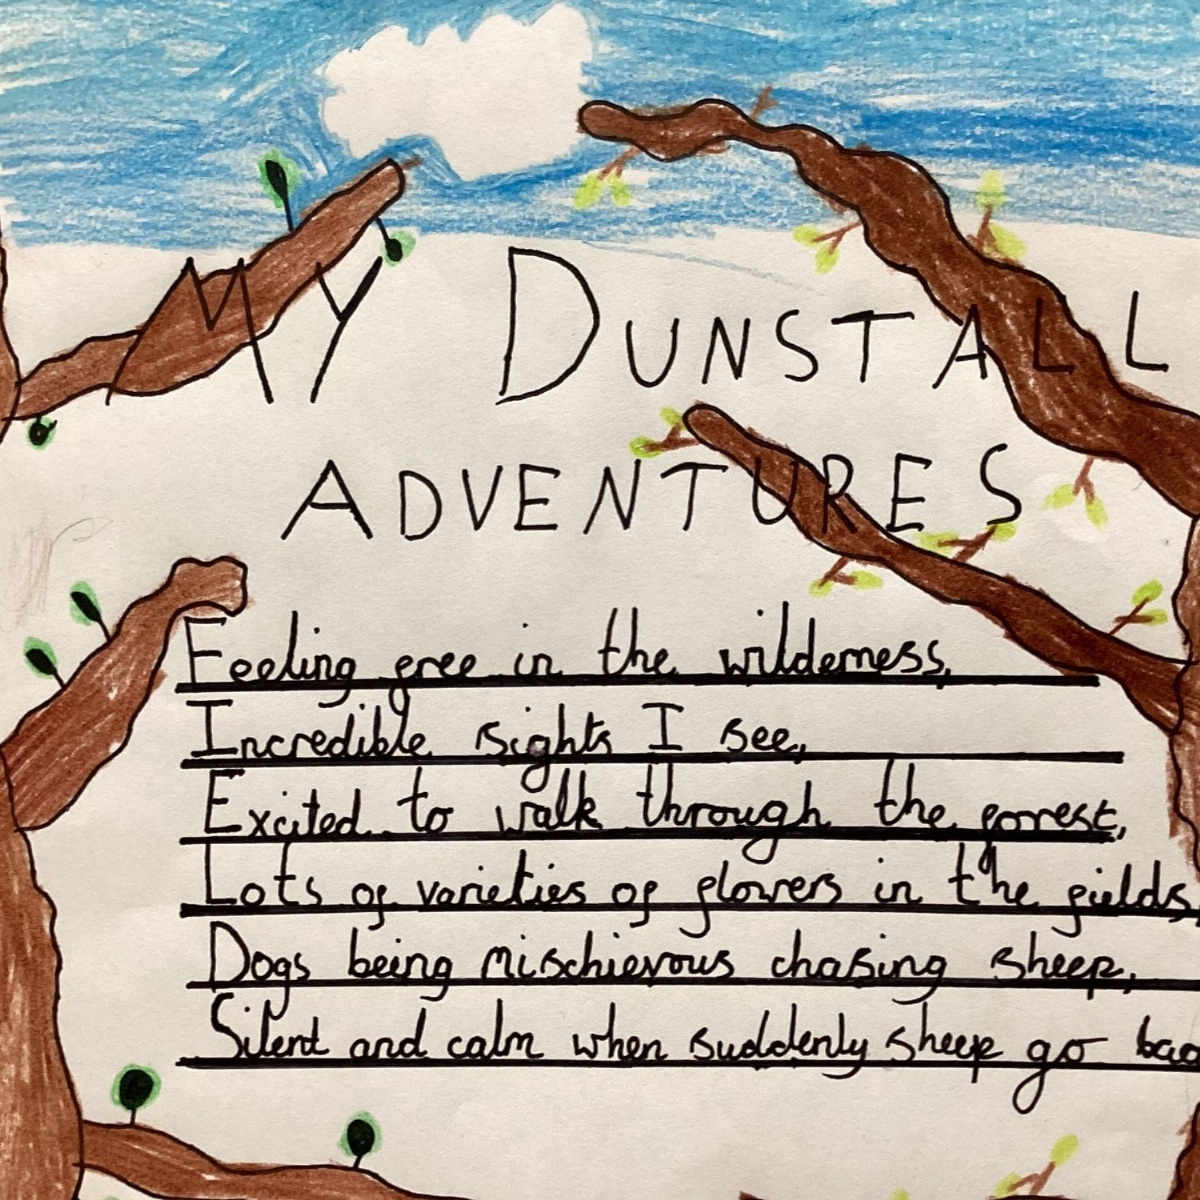 MY DUNSTALL
ADVENTURES
Feeling free in the wilderness,
Incredible sights I see,
Excited to walk through the forrest,
Lots of varieties of flowers in the fields,
Dogs being mischievous chasing sheep,
Silent and calm when suddenly sheep go